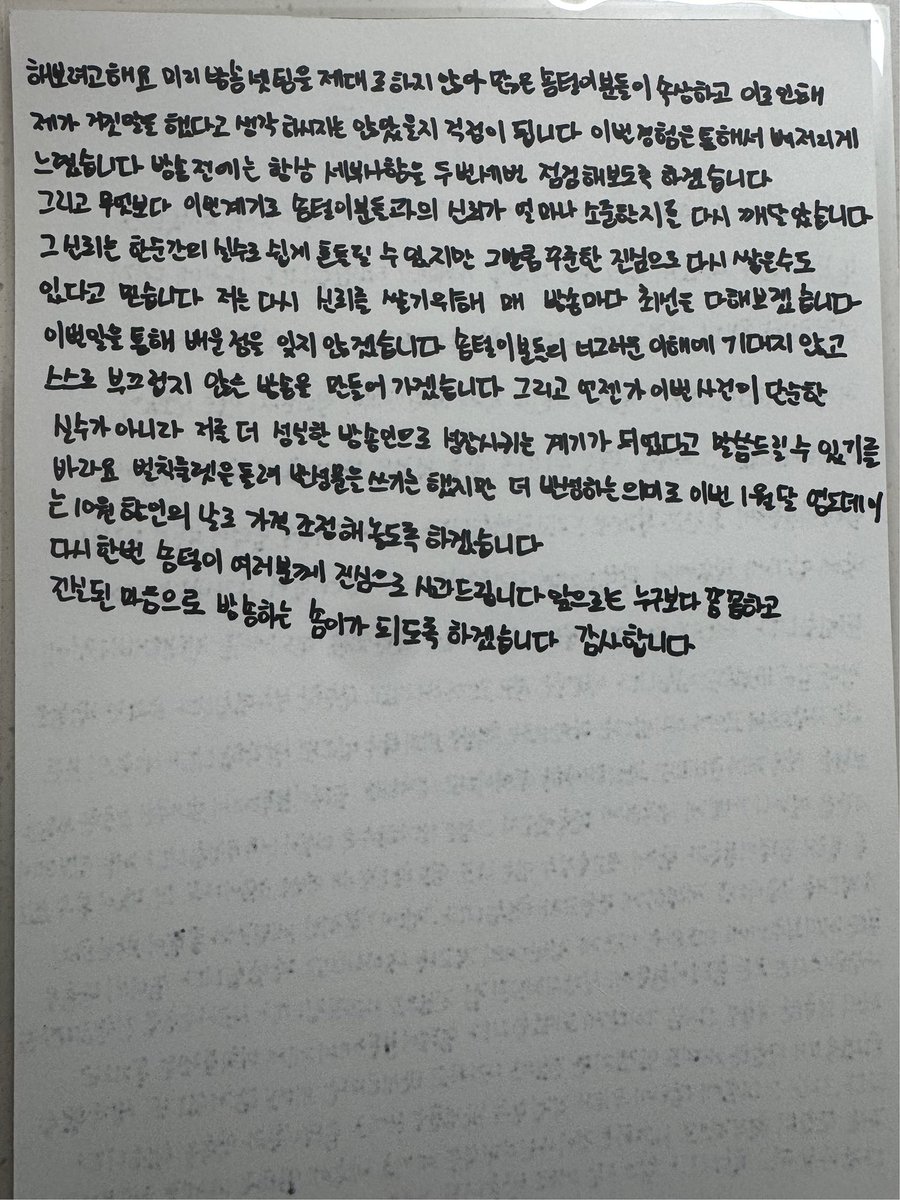 해보려고해요 미리 방송 셋팅을 제대로 하지 않아 많은 송털이분들이 속상하고 이로 인해
제가 거짓말을 했다고 생각 하시지는 않았을지 걱정이 됩니다 이번경험은 통해서 뼈저리게
느꼈습니다 방송전에는 항상 세부사항을 두번세번 점검해보도록 하겠습니다
그리고 무엇보다 이번계기로 송털이분들과의 신뢰가 얼마나 소중한지를 다시 깨달았습니다
그 신뢰는 한순간의 실수로 쉽게 흔들릴 수 있지만 그만큼 꾸준한 진심으로 다시 쌓을수도
있다고 믿습니다 저는 다시 신뢰를 쌓기위해 매 방송마다 최선을 다해보겠습니다
이번일을 통해 배운 점을 잊지 않겠습니다 송털이분들의 너그러운 이해에 기대지 않고
스스로 부끄럽지 않은 방송을 만들어 가겠습니다 그리고 언젠가 이번 사건이 단순한
실수가 아니라 저를 더 성실한 방송인으로 성장시키는 계기가 되었다고 말씀드릴 수 있기를
바라요 벌칙룰렛은 돌려 반성문을 쓰기는 했지만 더 반성하는 의미로 이번 1월달 엄도데이
는 10원 할인의 날로 가격 조정해 놓도록 하겠습니다
다시 한번 송털이 여러분께 진심으로 사과드립니다 앞으로는 누구보다 꼼꼼하고
진실된 마음으로 방송하는 송이가 되도록 하겠습니다 감사합니다